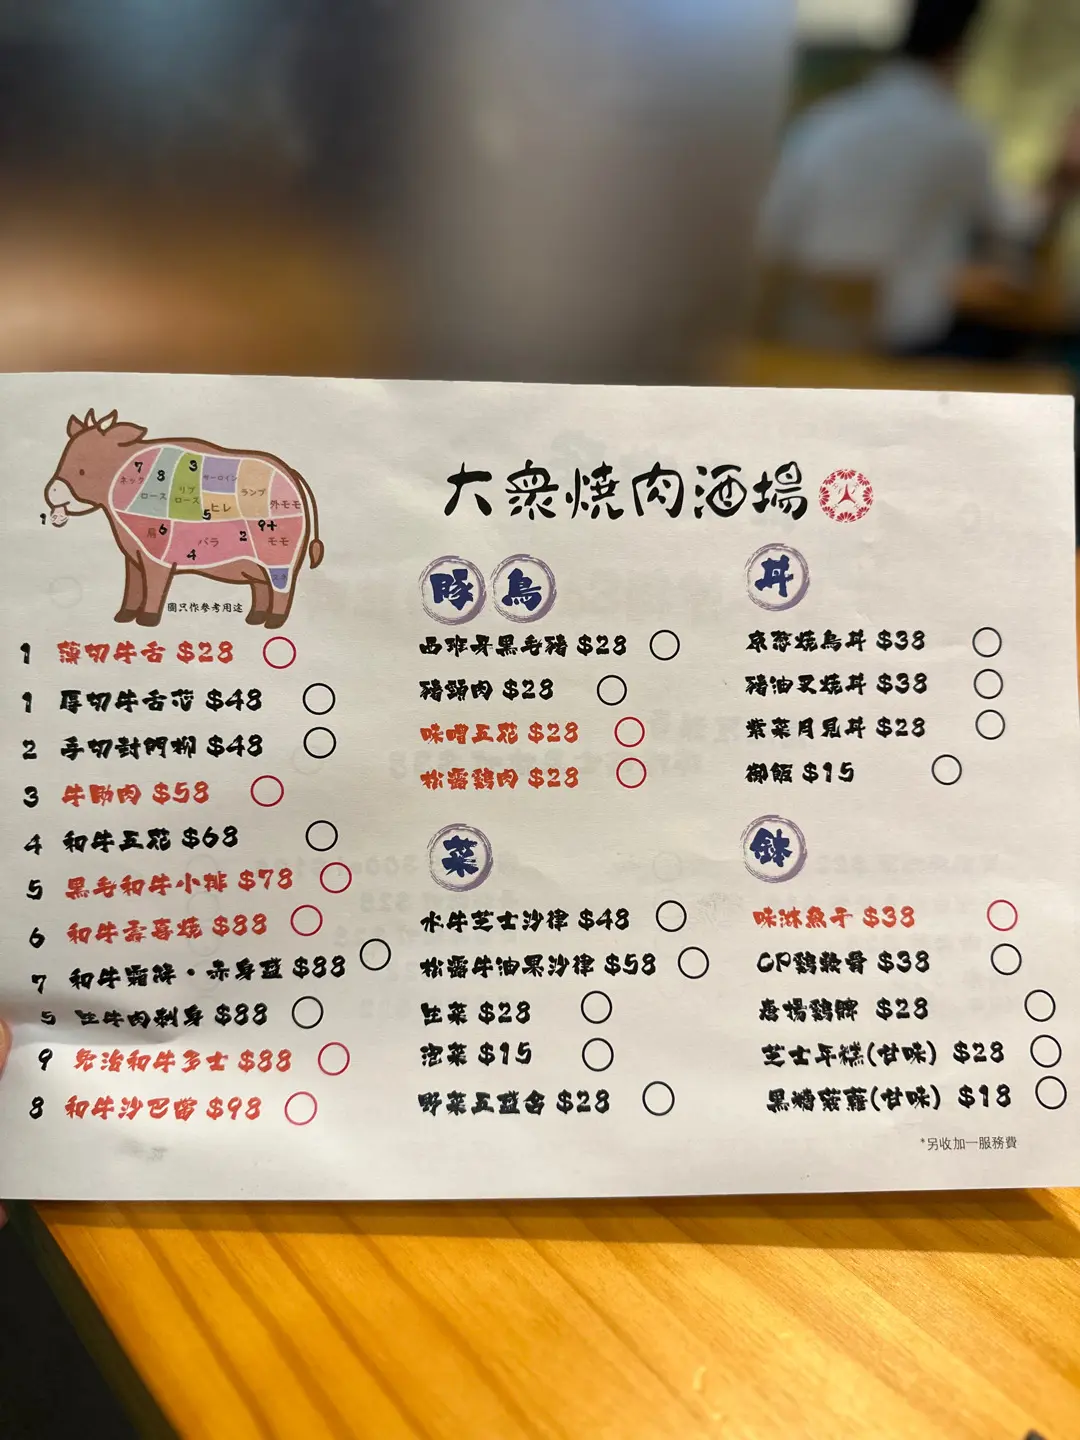 大衆燒肉酒場
ネック
7
ロース
8
リブ
ロース
3
サーロイン
ヒレ
5
ランプ
外モモ
肩
6
バラ
4
2
9+
モモ
1
圖只作參考用途
1 薄切牛舌 $28
1 厚切牛舌芯 $48
2 手切封門柳 $48
3 牛肋肉 $58
4 和牛五花 $68
5 黑毛和牛小排 $78
6 和牛壽喜燒 $88
7 和牛霜降・赤身盛 $88
5 生牛肉刺身 $88
9 免治和牛多士 $88
8 和牛沙巴翁 $98
豚 鳥
西班牙黑毛豬 $28
豬頸肉 $28
味噌五花 $28
松露鷄肉 $28
菜
水牛芝士沙律 $48
松露牛油果沙律 $58
生菜 $28
泡菜 $15
野菜五盛合 $28
丼
京葱燒鳥丼 $38
豬油叉燒丼 $38
紫菜月見丼 $28
御飯 $15
鉢
味淋魚干 $38
CP鷄軟骨 $38
唐揚鷄髀 $28
芝士年糕(甘味) $28
黑糖菠蘿(甘味) $18
*另收加一服務費